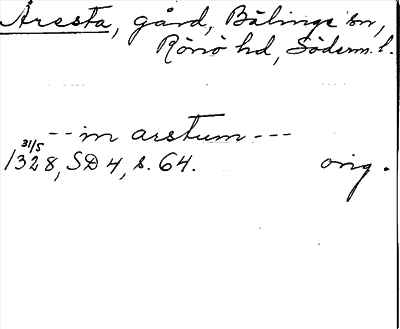 Åresta, gård, Bälinge sn,
Rönö hd, Söderm. l.
-- in arstum ---
31/5
1328, SD 4, s. 64. orig.